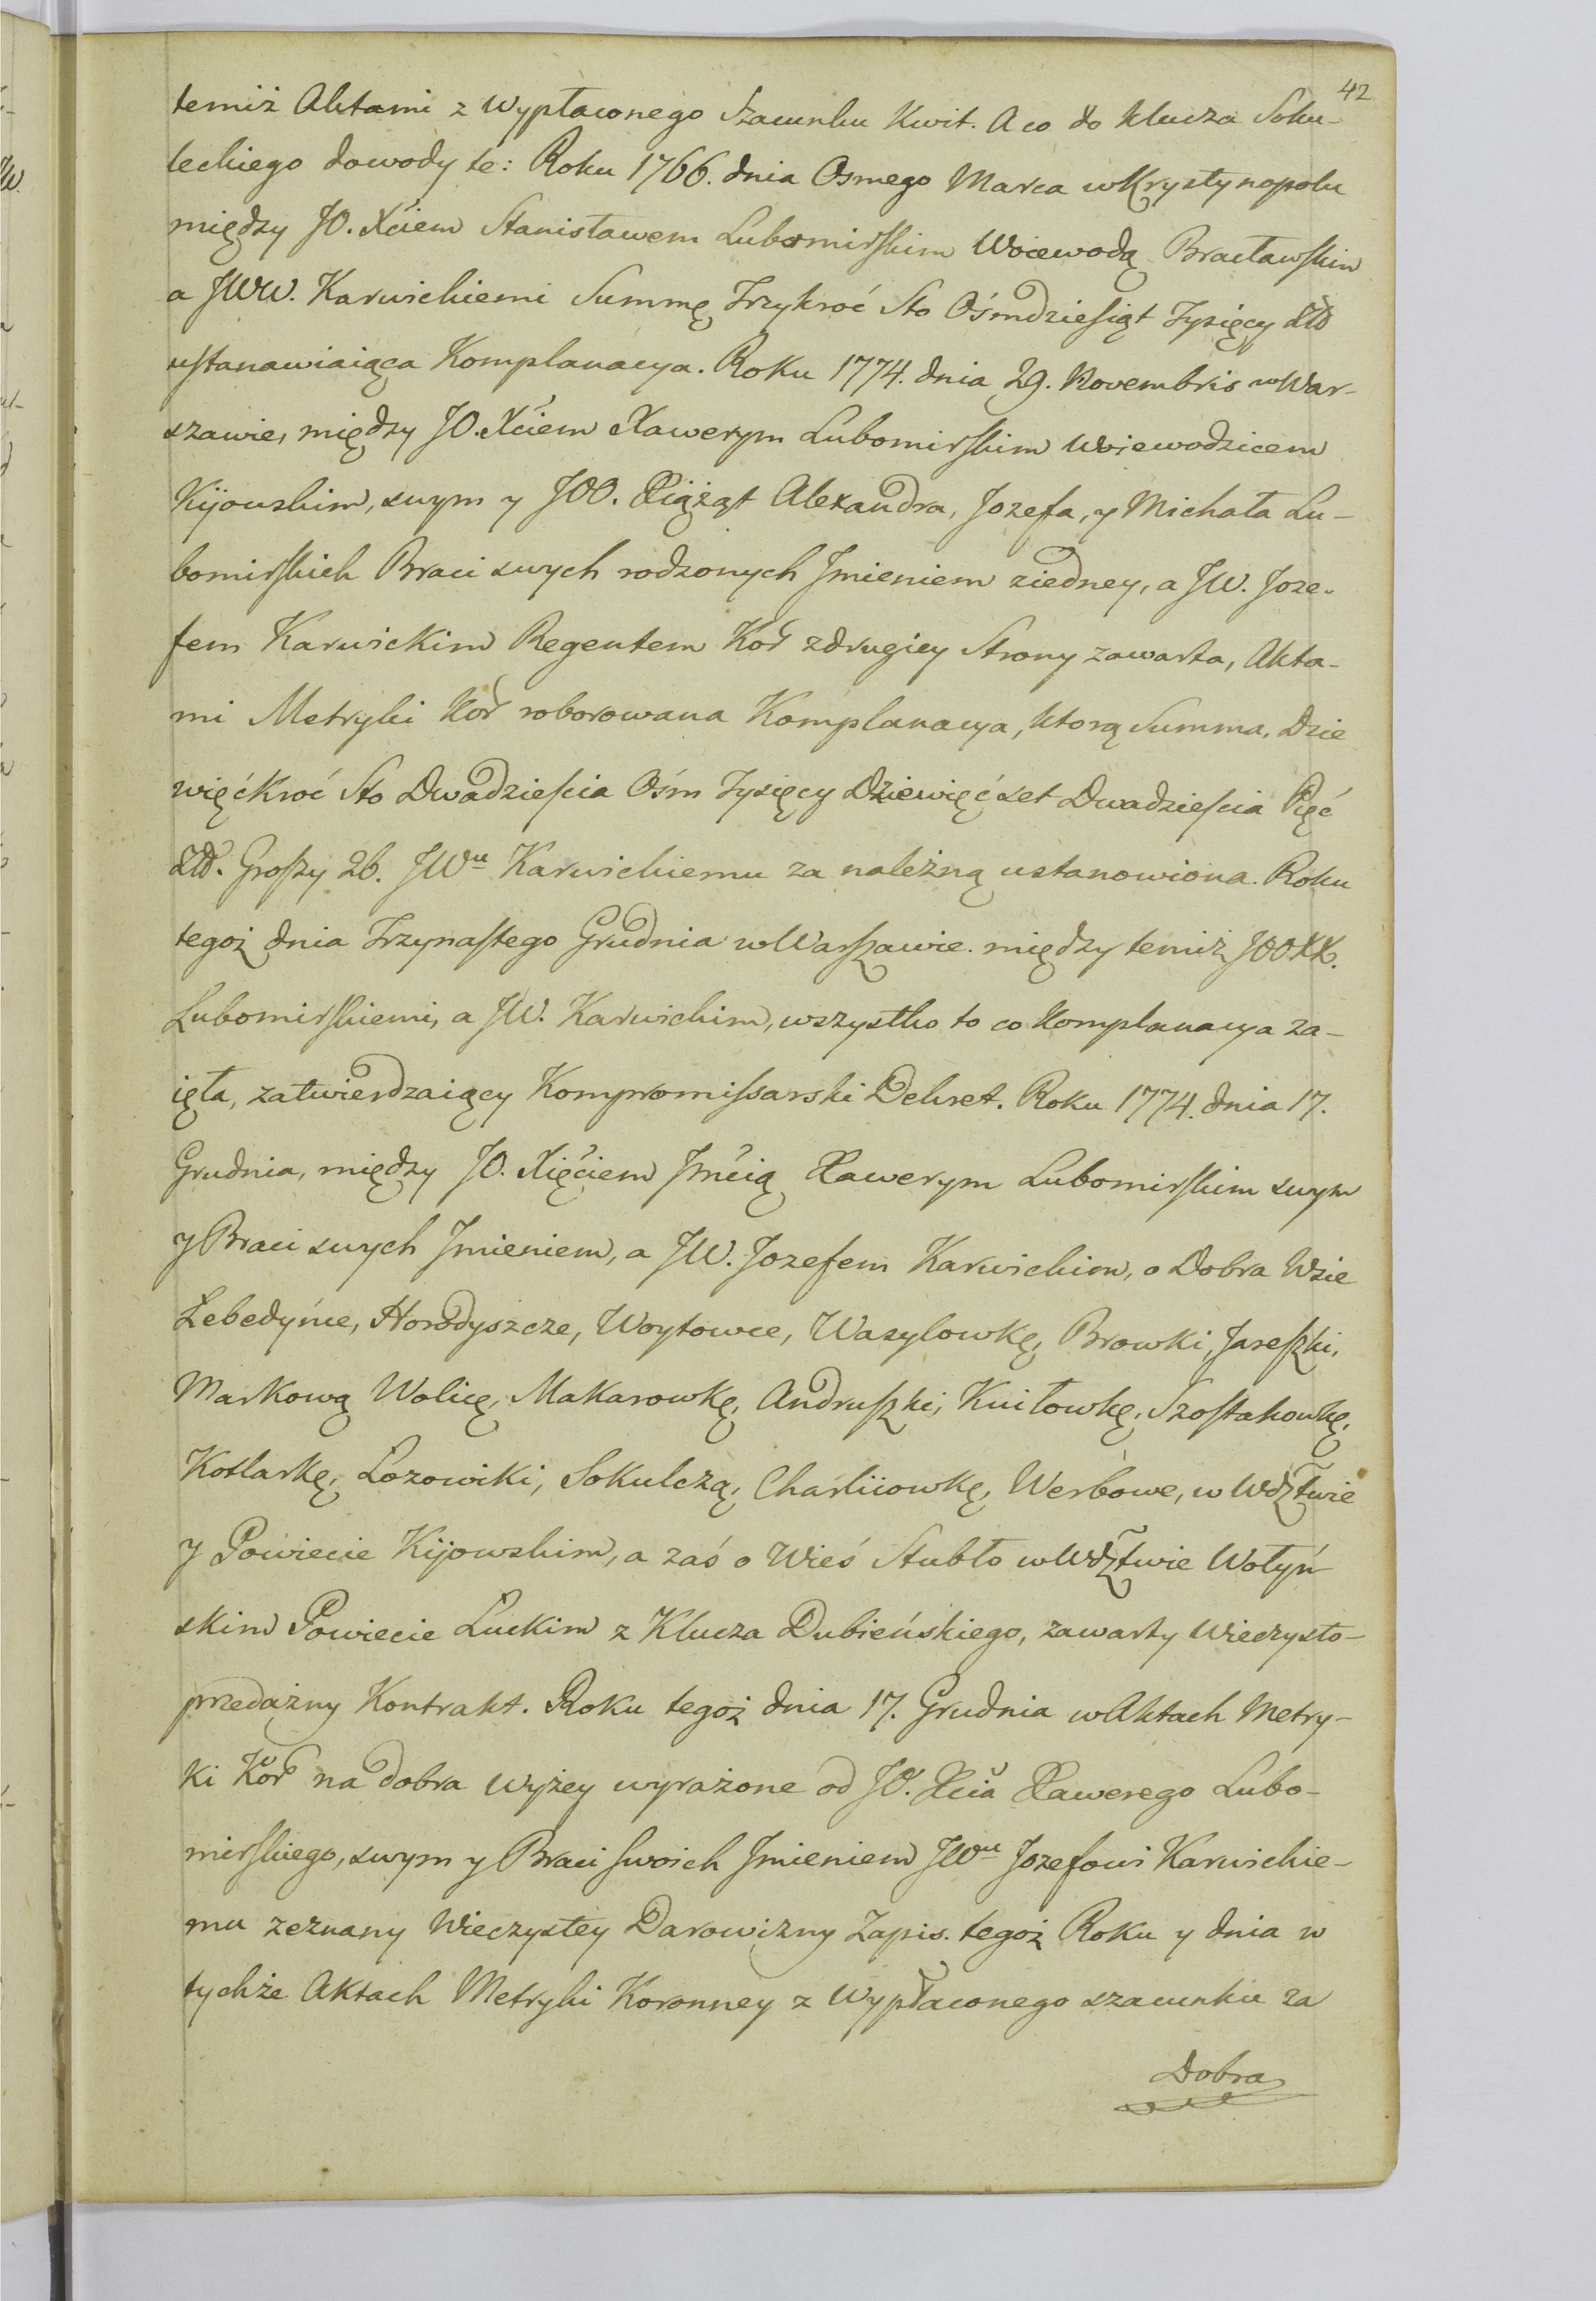 42
temiż Aktami z Wypłaconego Szacunku Kwit. A co do klucza Soku-
leckiego dowody te: Roku 1766. dnia Osmego Marca w Krystynopolu
między JO. Xćiem Stanisławem Lubomirskim Woiewodą Bracławskim
a JWW. Karwickiemi Summę Trzykroć Sto Ośmdziesiąt Tysięcy Złł
ustanawiaiąca Komplanacya. Roku 1774. dnia 29. Novembris w War-
szawie, między JO. Xćiem Xawerym Lubomirskim Woiewodzicem
Kijowskim, swym y JOO. Xiążąt Alexandra, Jozefa, y Michała Lu-
bomirskich Braci swych rodzonych Jmieniem ziedney, a JW. Joze-
fem Karwickim Regentem Kor̃ zdrugiey Strony zawarta, Akta-
mi Metryki Kor̃ roborowana Komplanacya, ktorą Summa, Dzie
więćkroć Sto Dwadzieścia Ośm Tysięcy Dziewięćset Dwadzieścia Pięć
Złł. Groszy 26. JWu Karwickiemu za należną ustanowiona. Roku
tegoż dnia Trzynastego Grudnia w Warszawie. między temiż JOOXX.
Lubomirskiemi, a JW. Karwickim, wszystko to co Komplanacya za-
ięła, zatwierdzaiący Kompromissarski Dekret. Roku 1774. dnia 17.
Grudnia, między JO. Xięćiem Jmćią Xawerym Lubomirskim swym
y Braci swych Jmieniem, a JW. Jozefem Karwickim, o Dobra Wsie
Lebedyńce, Horodyszcze, Woytowce, Wasylowkę, Browki, Jareszki,
Markową Wolicę, Makarowkę, Andruszki, Kniłowkę, Szostakowkę,
Kotlarkę, Łozowiki, Sokulczą, Charliiowkę, Werbowe, w Wdztwie
y Powiecie Kijowskim, a zaś o Wieś Stubło w Wdztwie Wołyń
skim Powiecie Łuckim z Klucza Dubieńskiego, zawarty Wieczysto-
przedażny Kontrakt. Roku tegoż dnia 17. Grudnia w Aktach Metry-
ki Kor̃ na dobra wyżey wyrażone od JO. Xcia Xawerego Lubo-
mirskiego, swym y Braci swoich Jmieniem JWu Jozefowi Karwickie-
mu zeznany Wieczystey Darowizny Zapis. tegoż Roku y dnia w
tychże Aktach Metryki Koronney z Wypłaconego szacunku za
Dobra